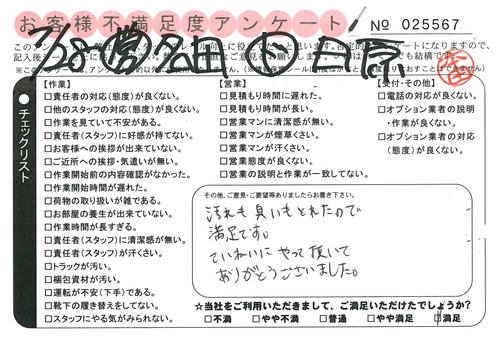 お客様不満足度アンケート!
No 025567
7/28 営 日原
チェックリスト
【作業】
□責任者の対応(態度)が良くない。
□他のスタッフの対応(態度)が良くない。
□作業を見ていて不安がある。
□責任者(スタッフ)に好感が持てない。
□お客様への挨拶が出来ていない。
□ご近所への挨拶・気遣いが無い。
□作業開始前の内容確認がなかった。
□作業開始時間が遅れた。
□荷物の取り扱いが雑である。
□お部屋の養生が出来ていない。
□作業時間が長すぎる。
□責任者(スタッフ)に清潔感が無い。
□責任者(スタッフ)が汗くさい。
□トラックが汚い。
□梱包資材が汚い。
□運転が不安(下手)である。
□靴下の履き替えをしてない。
□スタッフにやる気がみられない。
【営業】
□見積もり時間に遅れた。
□見積もり時間が長い。
□営業マンに清潔感が無い。
□営業マンが煙草くさい。
□営業マンが汗くさい。
□営業態度が良くない。
□営業の説明と作業が一致してない。
【受付・その他】
□電話の対応が良くない。
□オプション業者の説明
・作業が良くない。
□オプション業者の対応
(態度)が良くない。
その他、ご意見・ご要望等ありましたらお書き下さい。
汚れも臭いもとれたので
満足です。
ていねいにやって頂いて
ありがとうございました。
☆当社をご利用いただきまして、ご満足いただけたでしょうか?
□不満 □やや不満 □普通 □やや満足 □満足